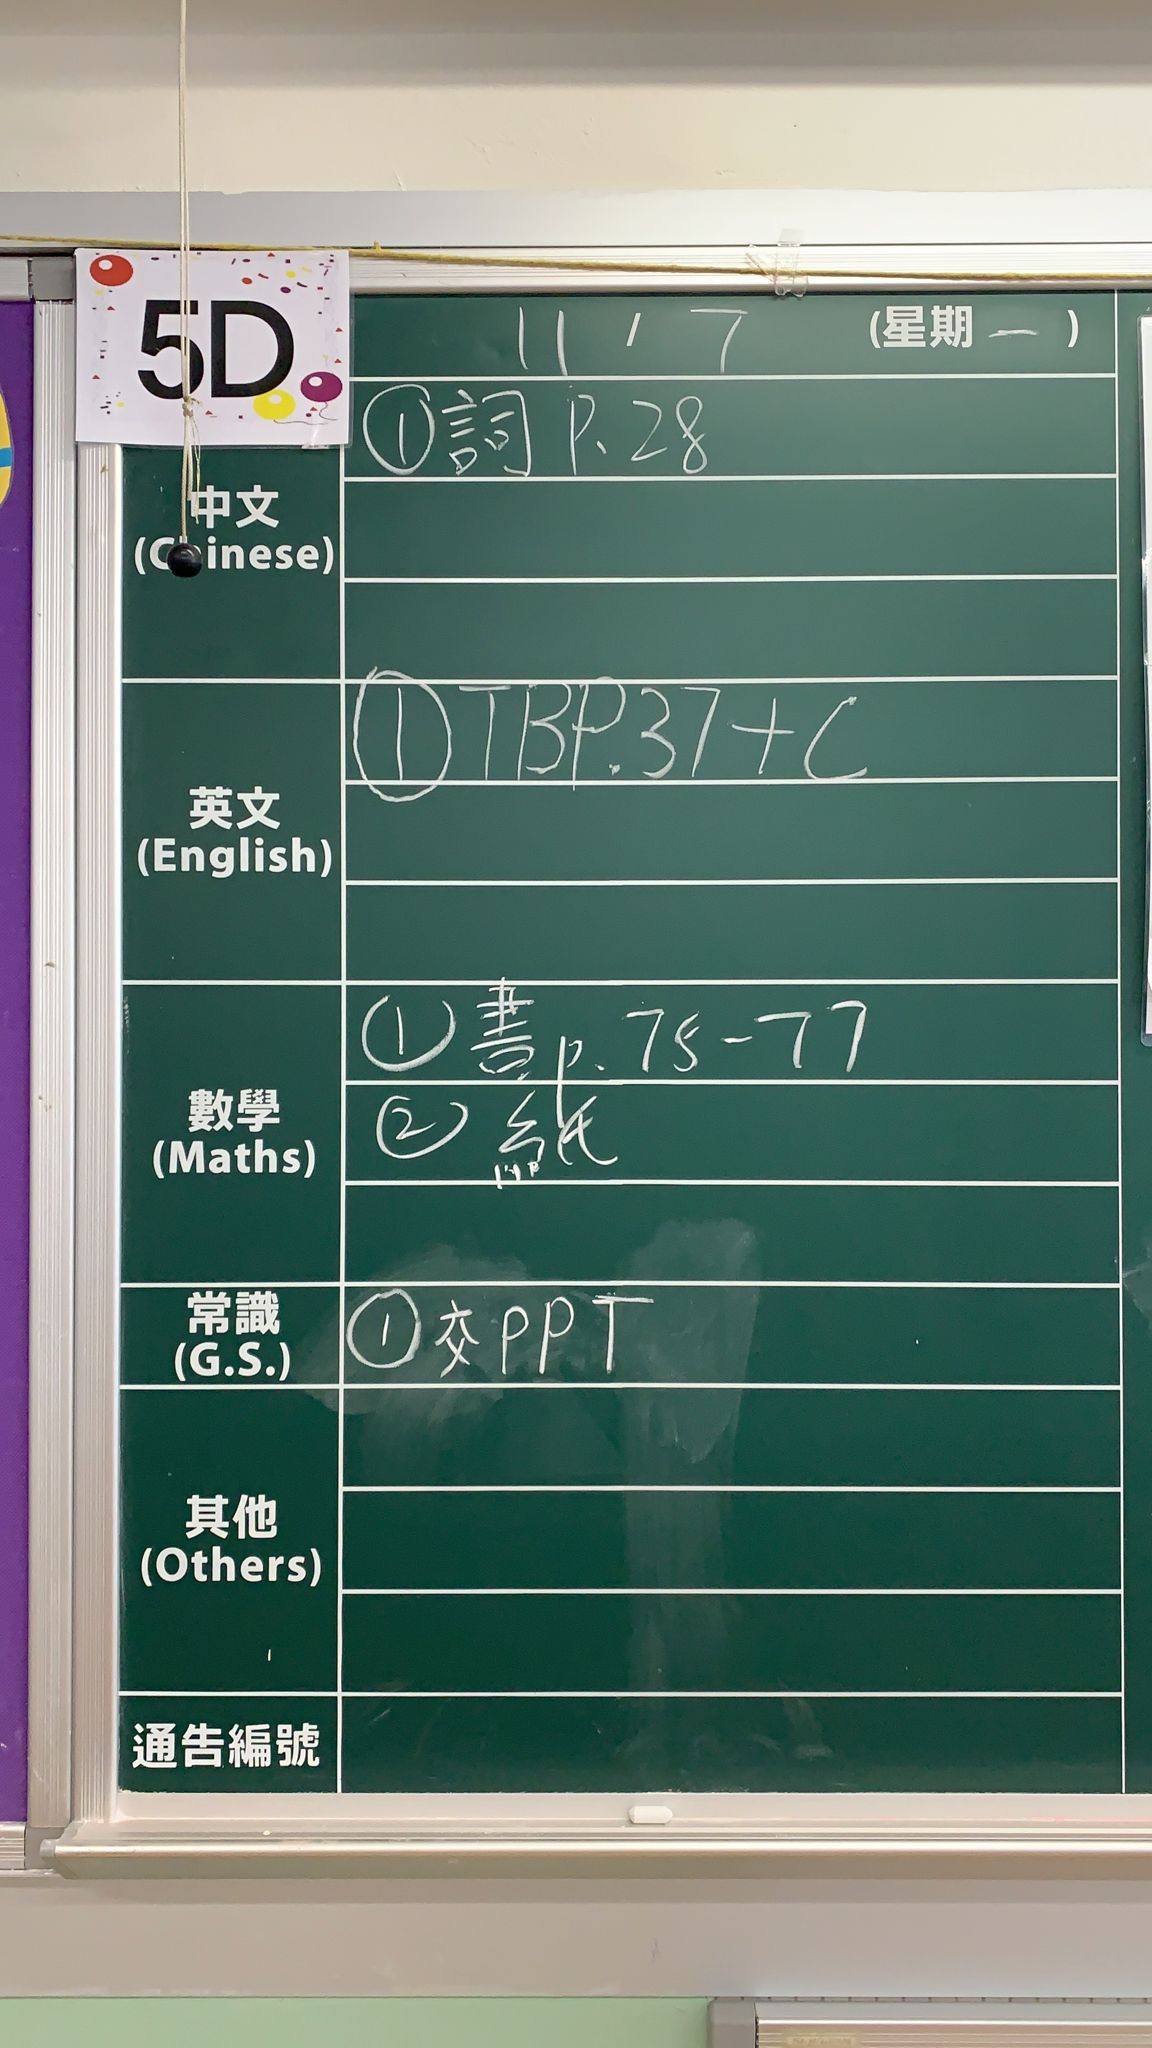 5D
11 / 7 (星期一)
中文
(Chinese)
① 詞 P.28
英文
(English)
① TBP.37+C
數學
(Maths)
① 書 p.75-77
② 紙
常識
(G.S.)
① 交PPT
其他
(Others)
通告編號